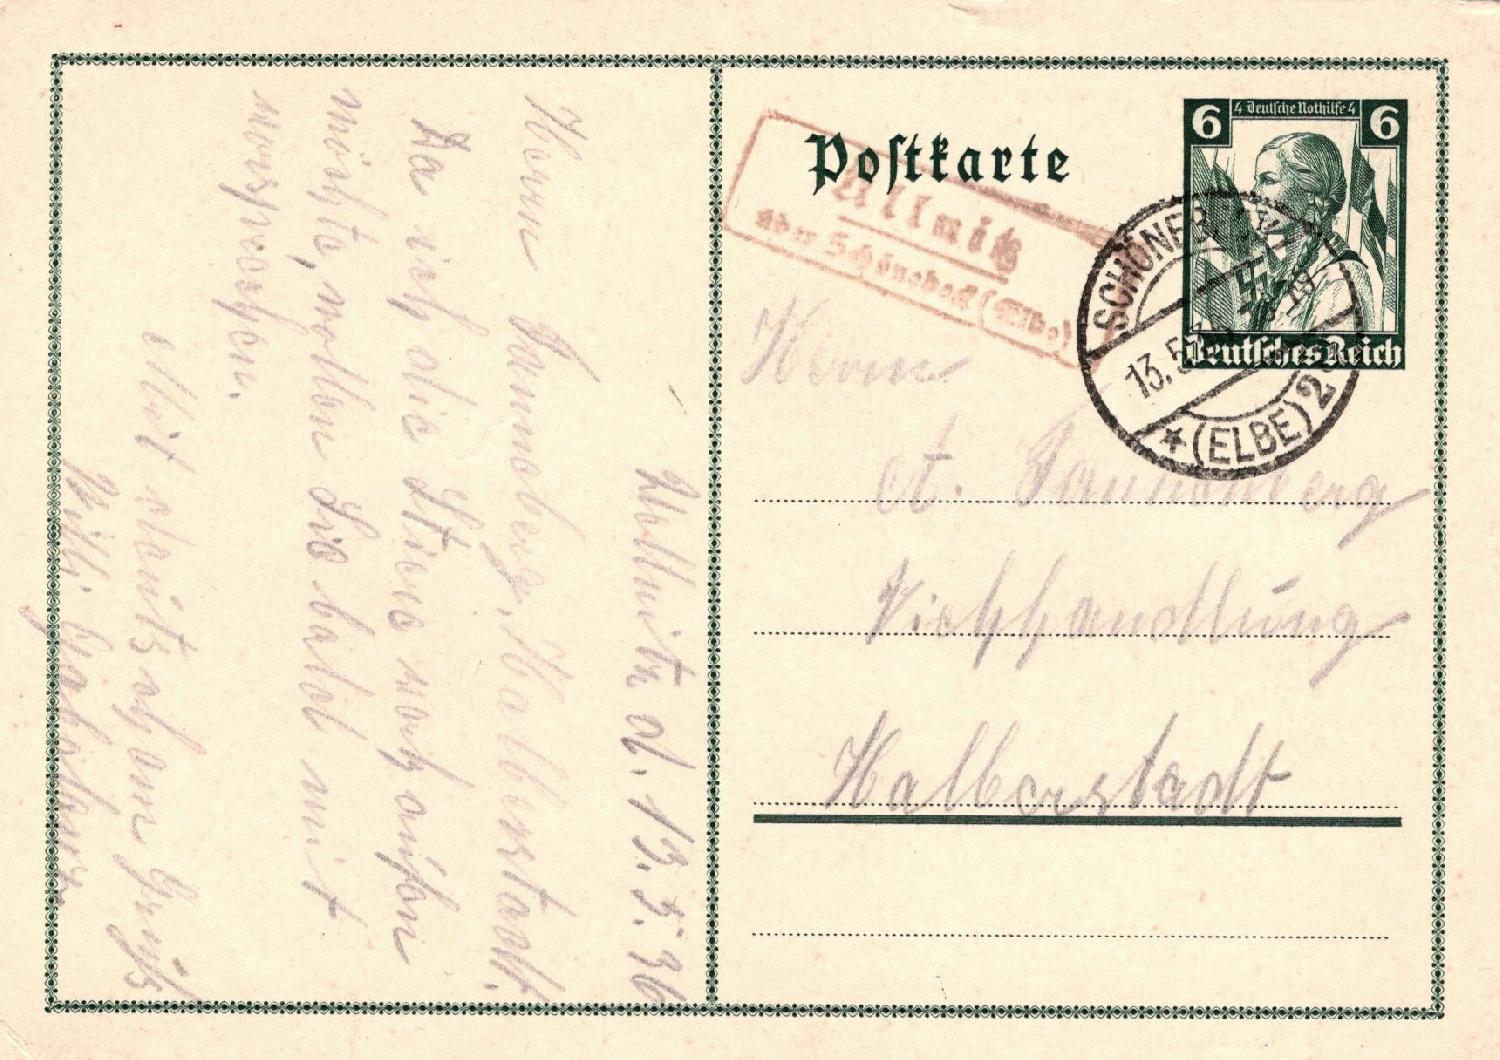 Postkarte
6 4 Deutsche Nothilfe 4 6
Deutsches Reich
Ullnitz
über Schönebeck (Elbe)
SCHÖNEBECK
13.5.
* (ELBE) 2
Herrn
A. Tannenberg
Viehhandlung
Halberstadt
Ullnitz d. 13.5.36
Herrn Tannenberg, Halberstadt.
Da ich die Stiere noch
möchte, wollen Sie bald mit
vorsprechen.
Mit deutschem Gruß
Willi